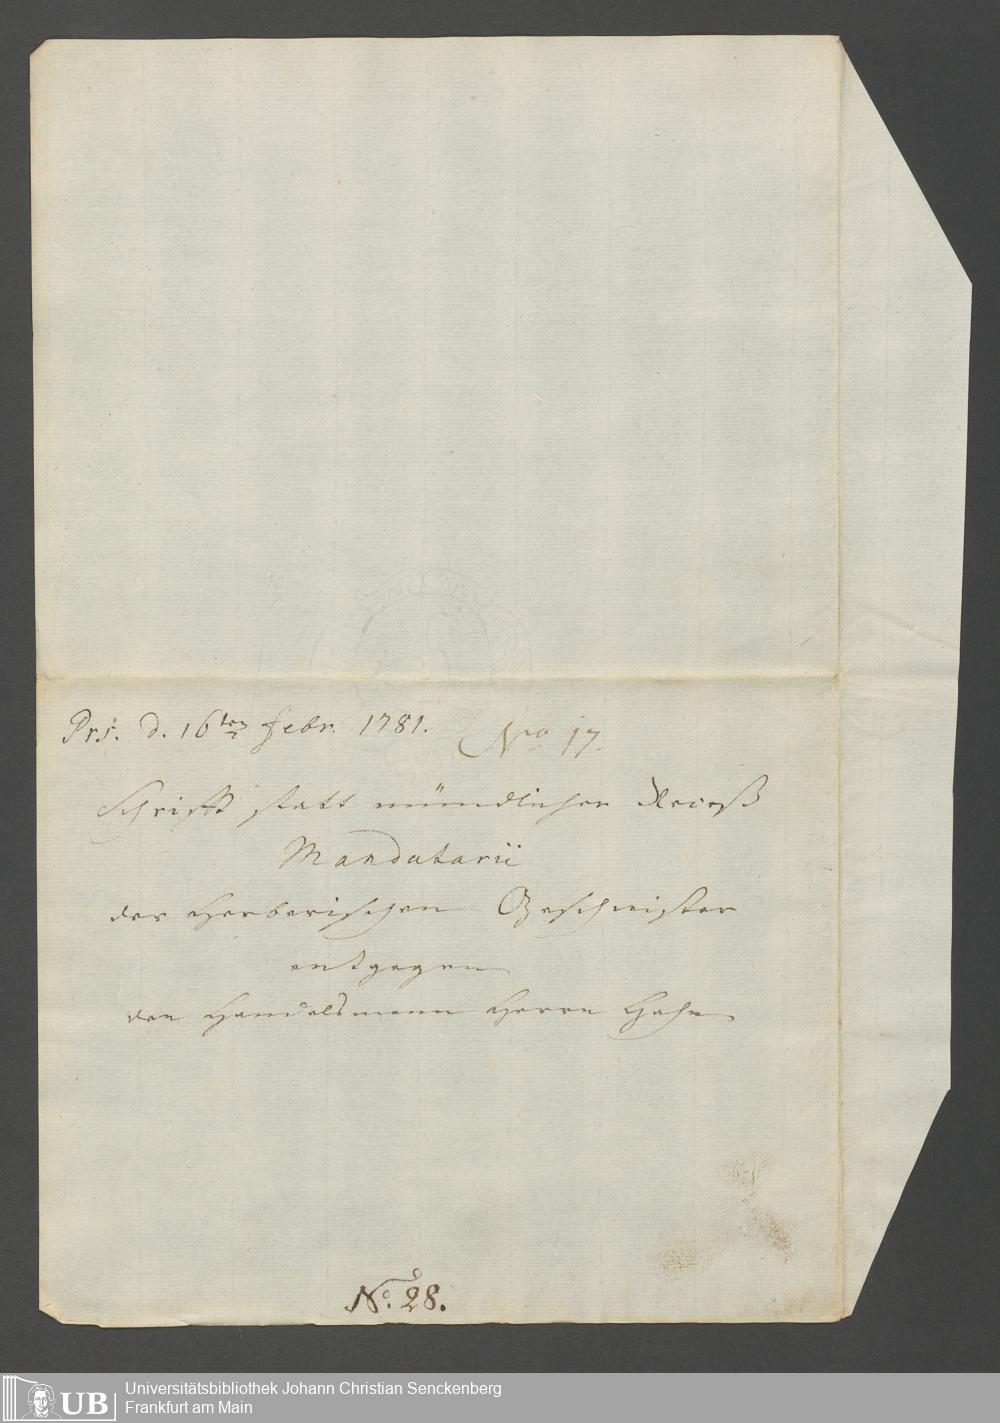 Prs. d. 16ten Febr. 1781.
No 17.
Schrifft statt mündlicher
Mandatarii
der Herberischen Geschwister
entgegen
den Handelsmann Herrn Hahn
No. 28.
UB Universitätsbibliothek Johann Christian Senckenberg
Frankfurt am Main